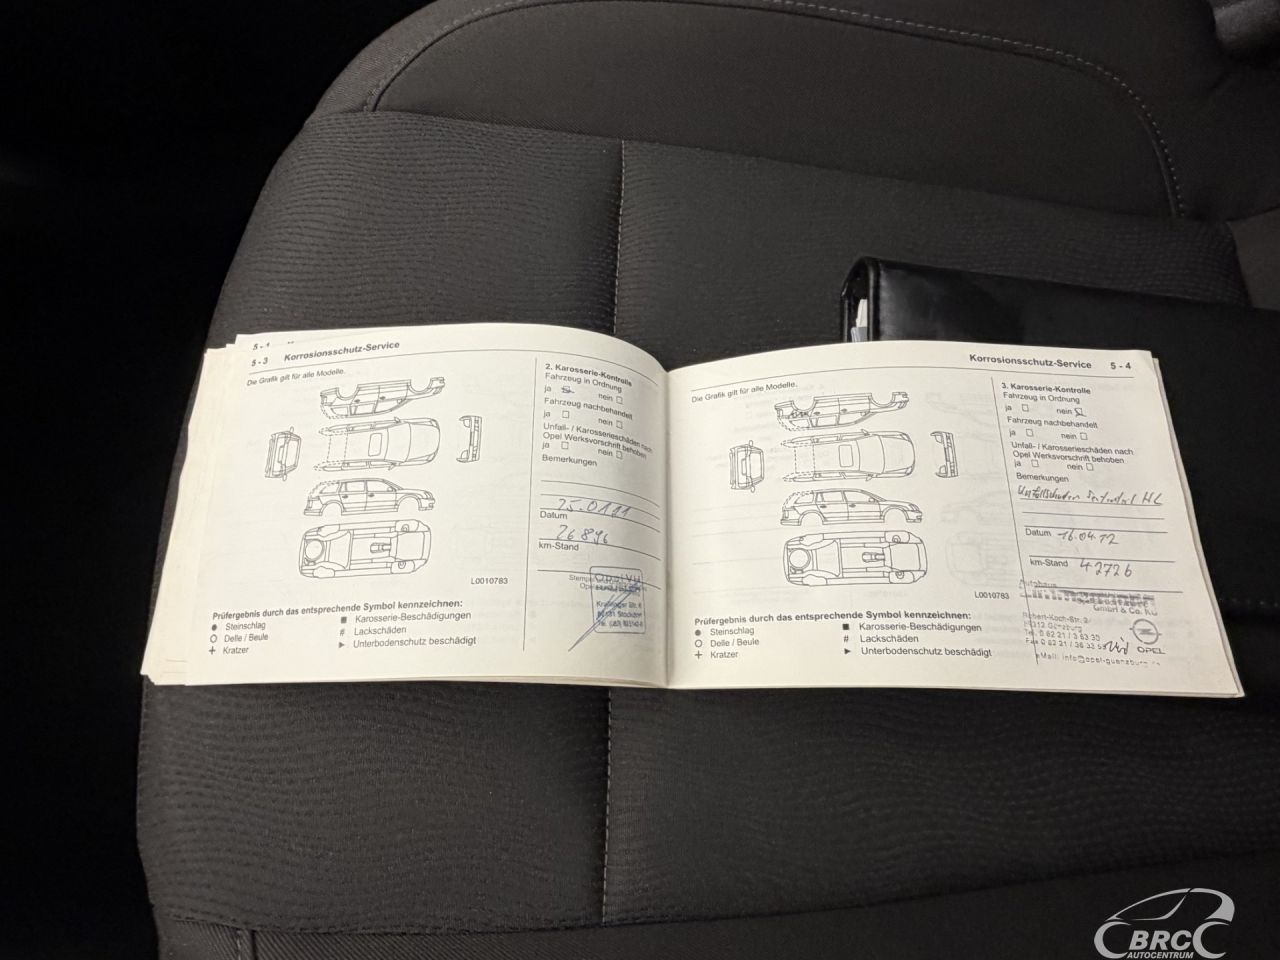 5 - 3 Korrosionsschutz-Service
Die Grafik gilt für alle Modelle.
L0010783
Prüfergebnis durch das entsprechende Symbol kennzeichnen:
● Steinschlag
○ Delle / Beule
+ Kratzer
■ Karosserie-Beschädigungen
# Lackschäden
► Unterbodenschutz beschädigt
2. Karosserie-Kontrolle
Fahrzeug in Ordnung
ja nein
Fahrzeug nachbehandelt
ja nein
Unfall- / Karosserieschäden nach
Opel Werksvorschrift behoben
ja nein
Bemerkungen
Datum
26896
km-Stand
Korrosionsschutz-Service 5 - 4
Die Grafik gilt für alle Modelle.
L0010783
Prüfergebnis durch das entsprechende Symbol kennzeichnen:
● Steinschlag
○ Delle / Beule
+ Kratzer
■ Karosserie-Beschädigungen
# Lackschäden
► Unterbodenschutz beschädigt
3. Karosserie-Kontrolle
Fahrzeug in Ordnung
ja nein
Fahrzeug nachbehandelt
ja nein
Unfall- / Karosserieschäden nach
Opel Werksvorschrift behoben
ja nein
Bemerkungen
Unfallschaden
Datum 16.04.12
km-Stand 42726
Autohaus
GmbH & Co. KG
Robert-Koch-Str. 2
Günzburg
OPEL
eMail: info@opel-guenzburg
BRC
AUTOCENTRUM